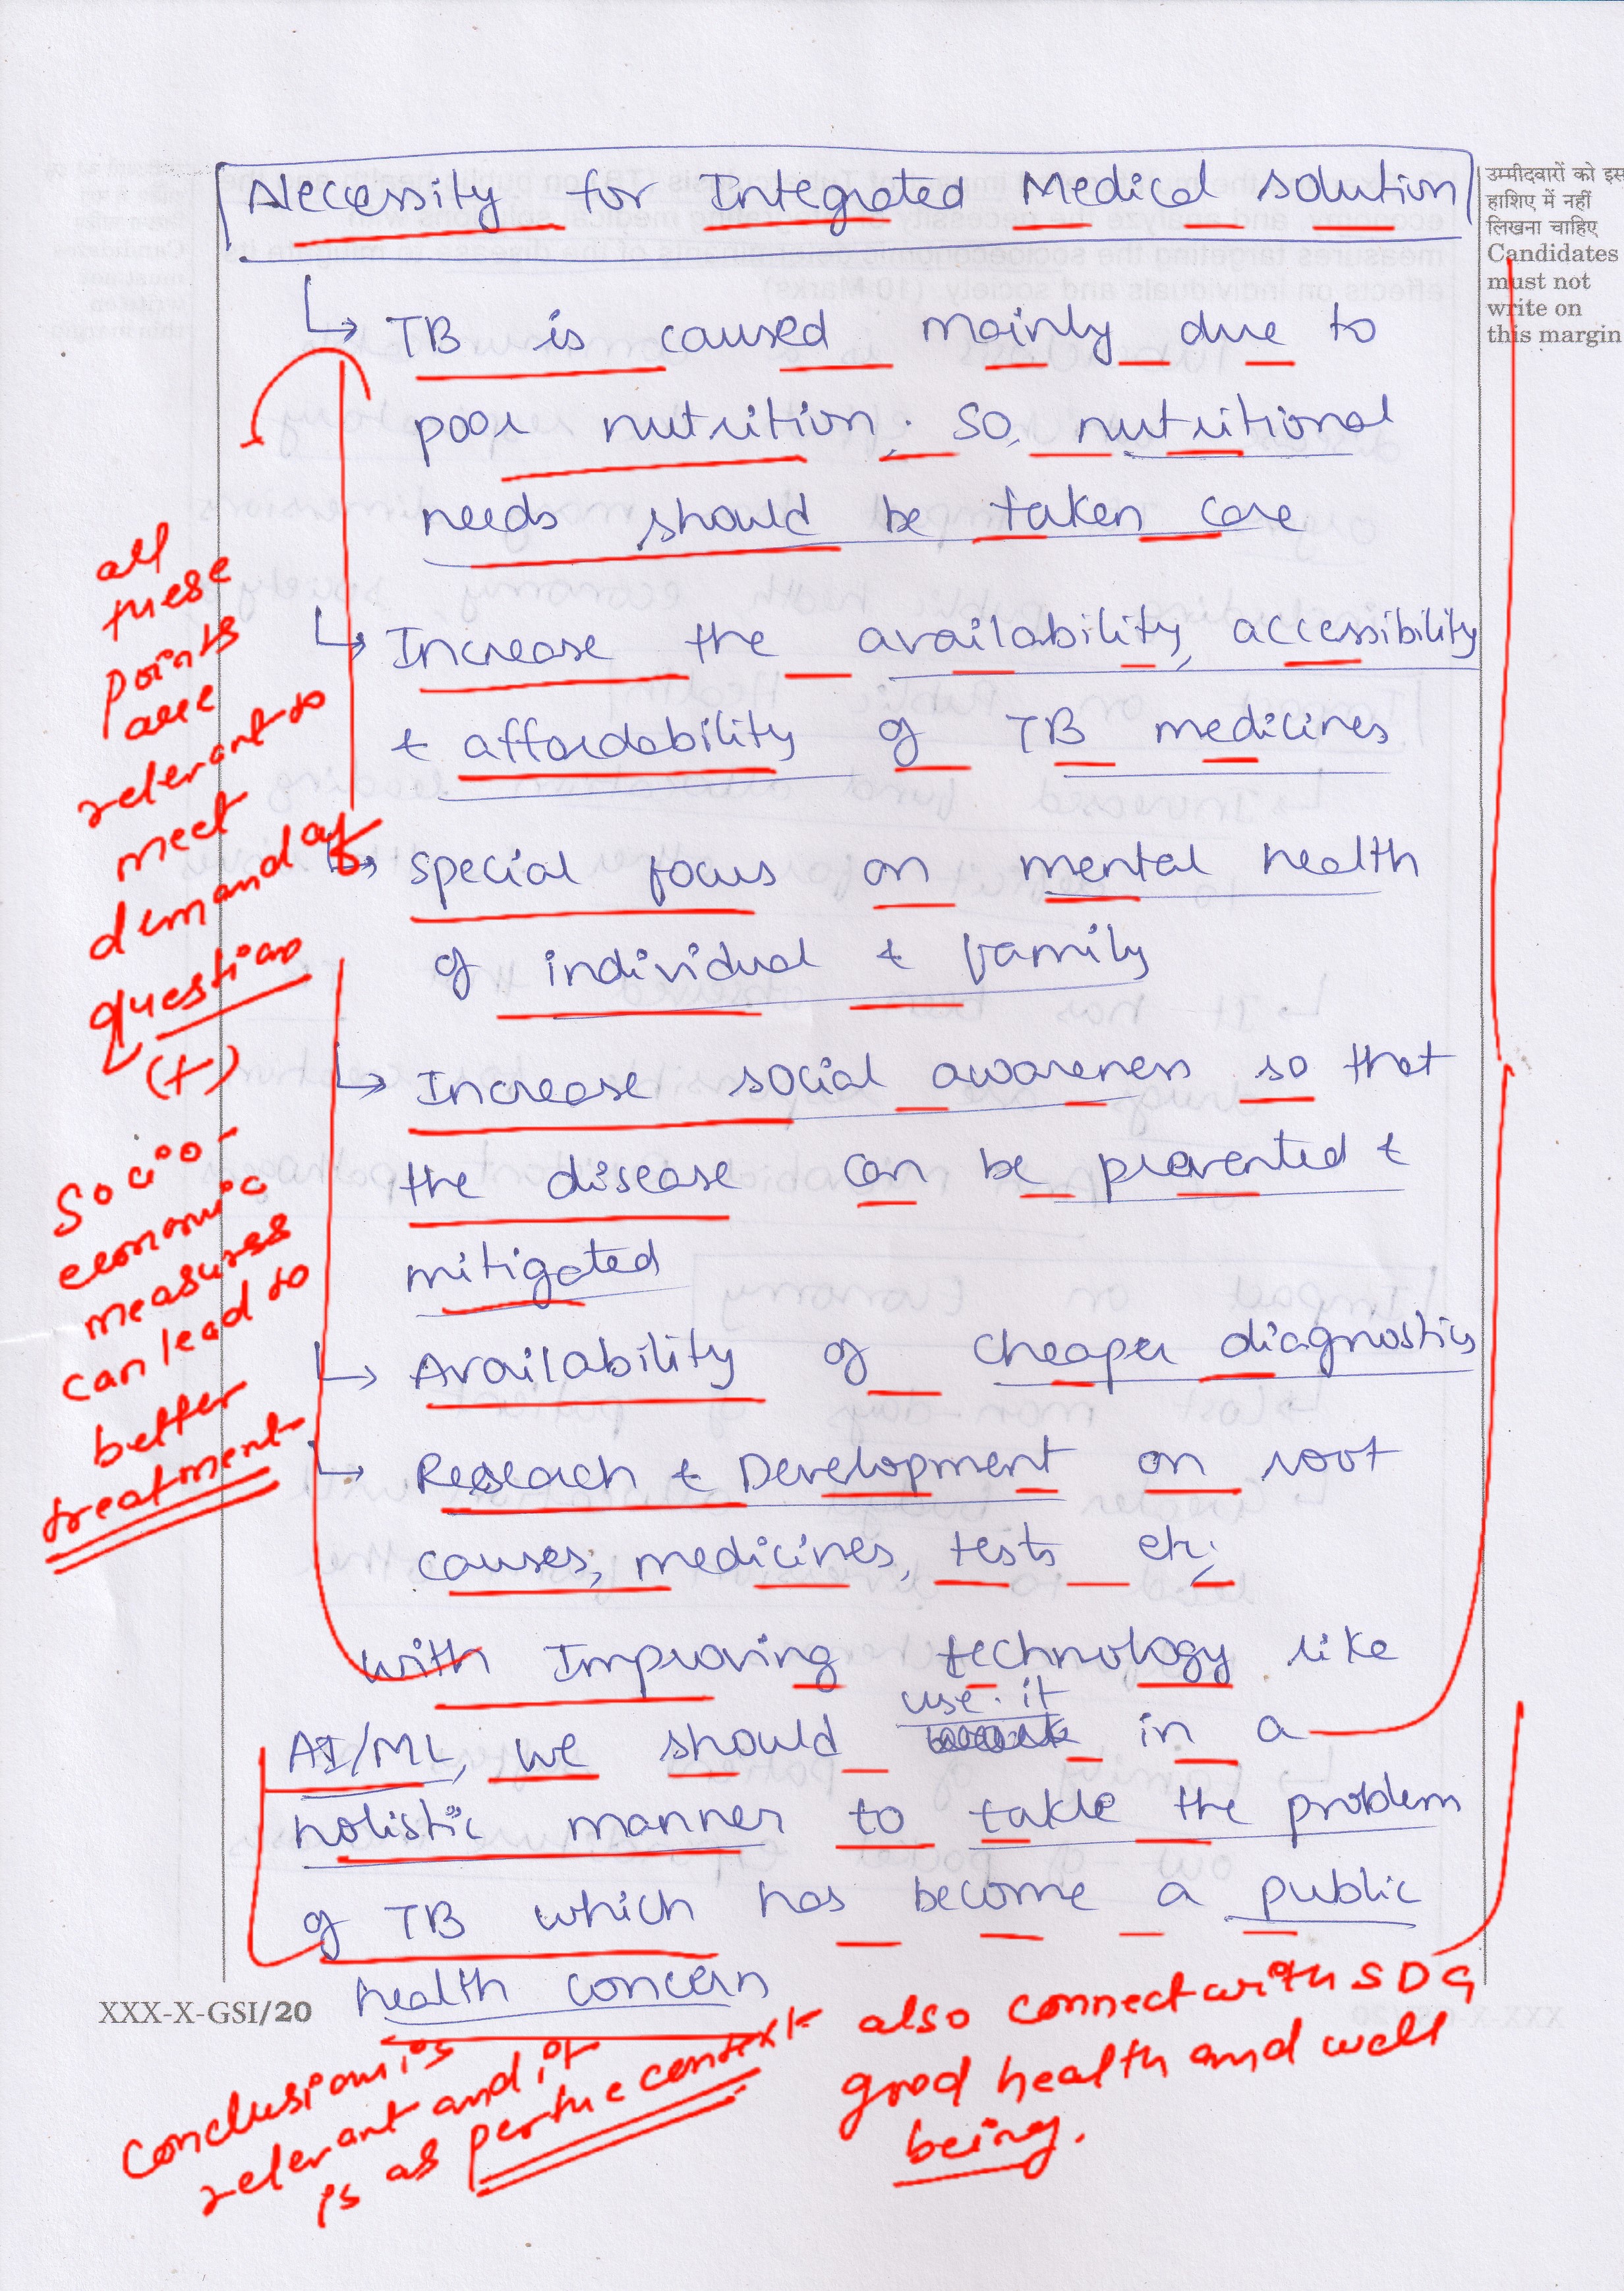 Necessity for Integrated Medical solution
उम्मीदवारों को इस
हाशिए में नहीं
लिखना चाहिए
Candidates
must not
write on
this margin
↳ TB is caused mainly due to
poor nutrition. so, nutritional
needs should be taken care
↳ Increase the availability, accessibility
& affordability of TB medicines
↳ special focus on mental health
of individual & family
↳ Increase social awareness so that
the disease can be prevented &
mitigated
↳ Availability of cheaper diagnostics
↳ Research & Development on root
causes, medicines, tests etc.
with Improving technology like
use it
AI/ML, we should in a
holistic manner to takle the problem
of TB which has become a public
health concern
all
these
points
are
relevant to
meet
demand of
question
(+)
Socio-
economic
measures
can lead to
better
treatment
XXX-X-GSI/20
Conclusion is
relevant and it
is as per the context
also connect with SDG
good health and well
being.